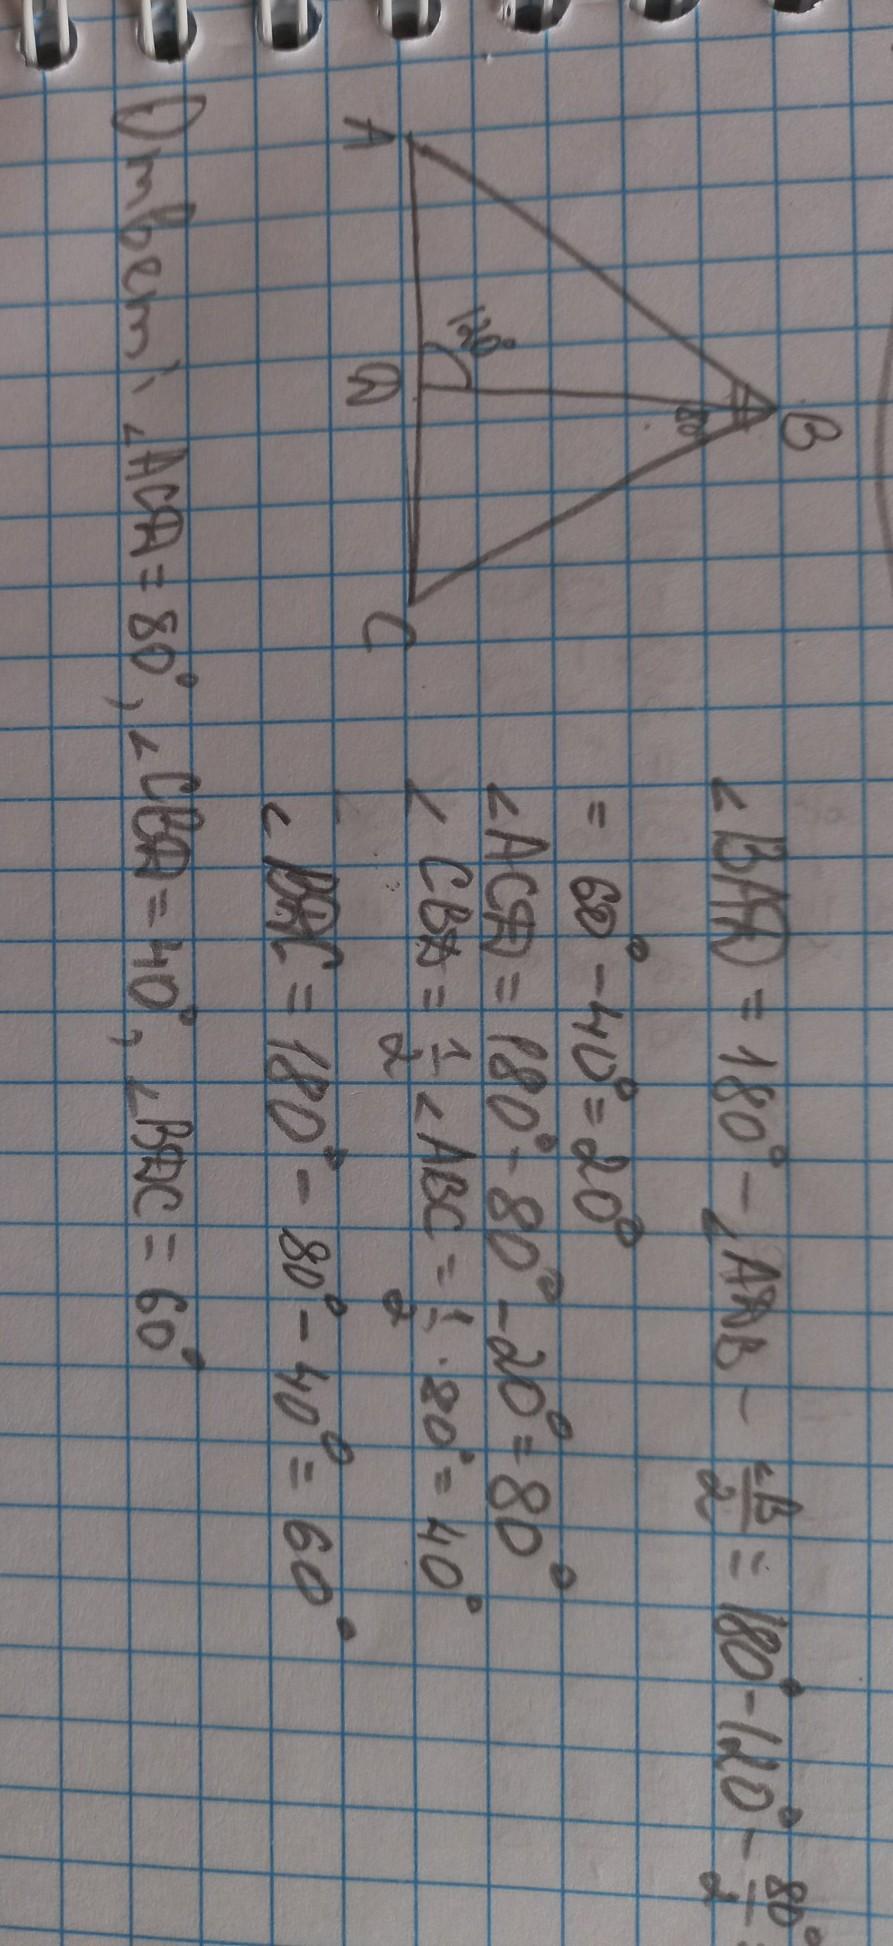 B
80
120°
A
D
C
∠BAD = 180° - ∠ADB - ∠B/2 = 180° - 120° - 80°/2 =
= 60° - 40° = 20°
∠ACD = 180° - 80° - 20° = 80°
∠CBD = 1/2 ∠ABC = 1/2 · 80° = 40°
∠BDC = 180° - 80° - 40° = 60°
Ответ: ∠ACD = 80°, ∠CBD = 40°, ∠BDC = 60°